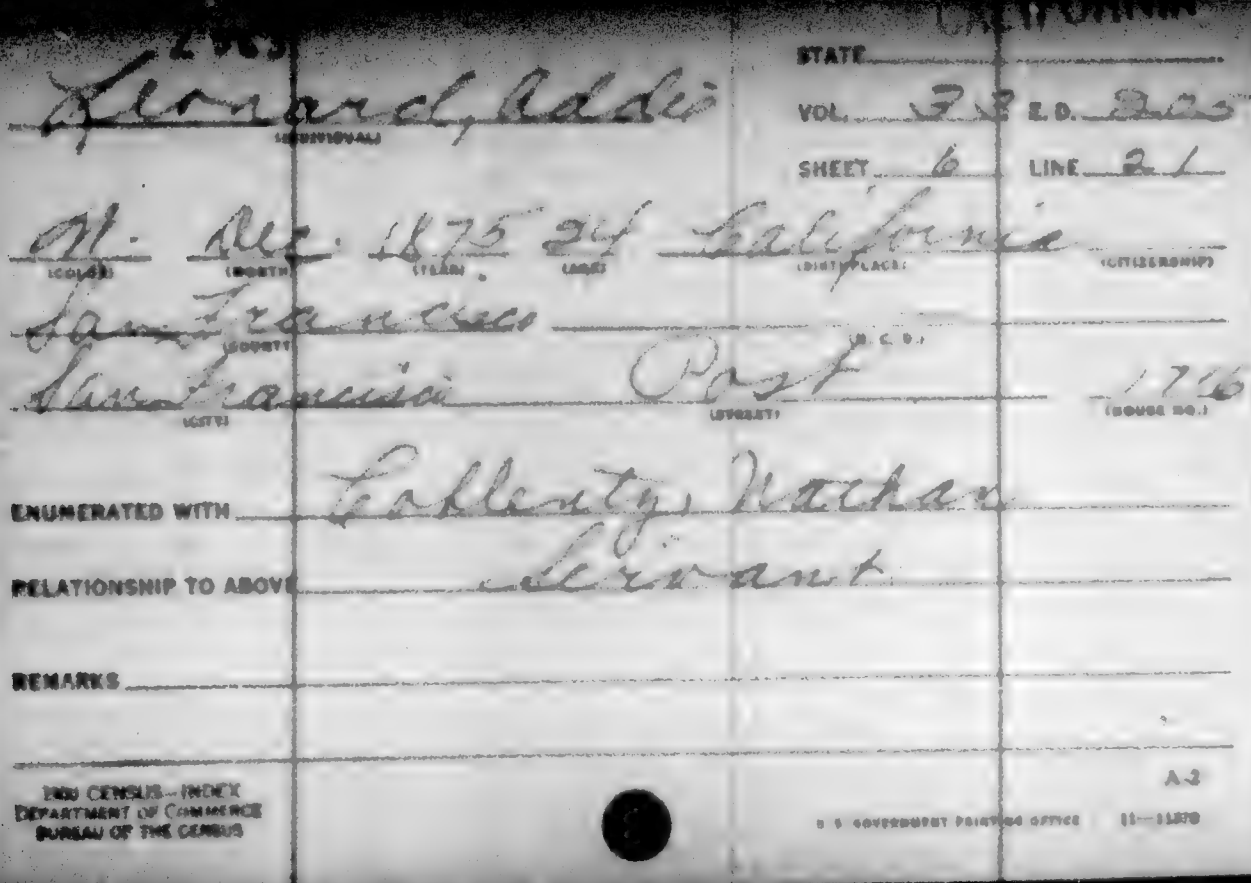 CALIFORNIA
STATE
Leonard, Addie
(INDIVIDUAL)
VOL. 33 E. D. 205
SHEET 6 LINE 21
Dec. 1875 24 California
(COLOR) (MONTH) (YEAR) (AGE) (BIRTHPLACE) (CITIZENSHIP)
San Francisco
(COUNTY) (M. C. D.)
San Francisco Post 1716
(CITY) (STREET) (HOUSE NO.)
ENUMERATED WITH Coblenty, Nathan
RELATIONSHIP TO ABOVE Servant
REMARKS
1900 CENSUS—INDEX
DEPARTMENT OF COMMERCE
BUREAU OF THE CENSUS
A-2
U. S. GOVERNMENT PRINTING OFFICE 11—11870